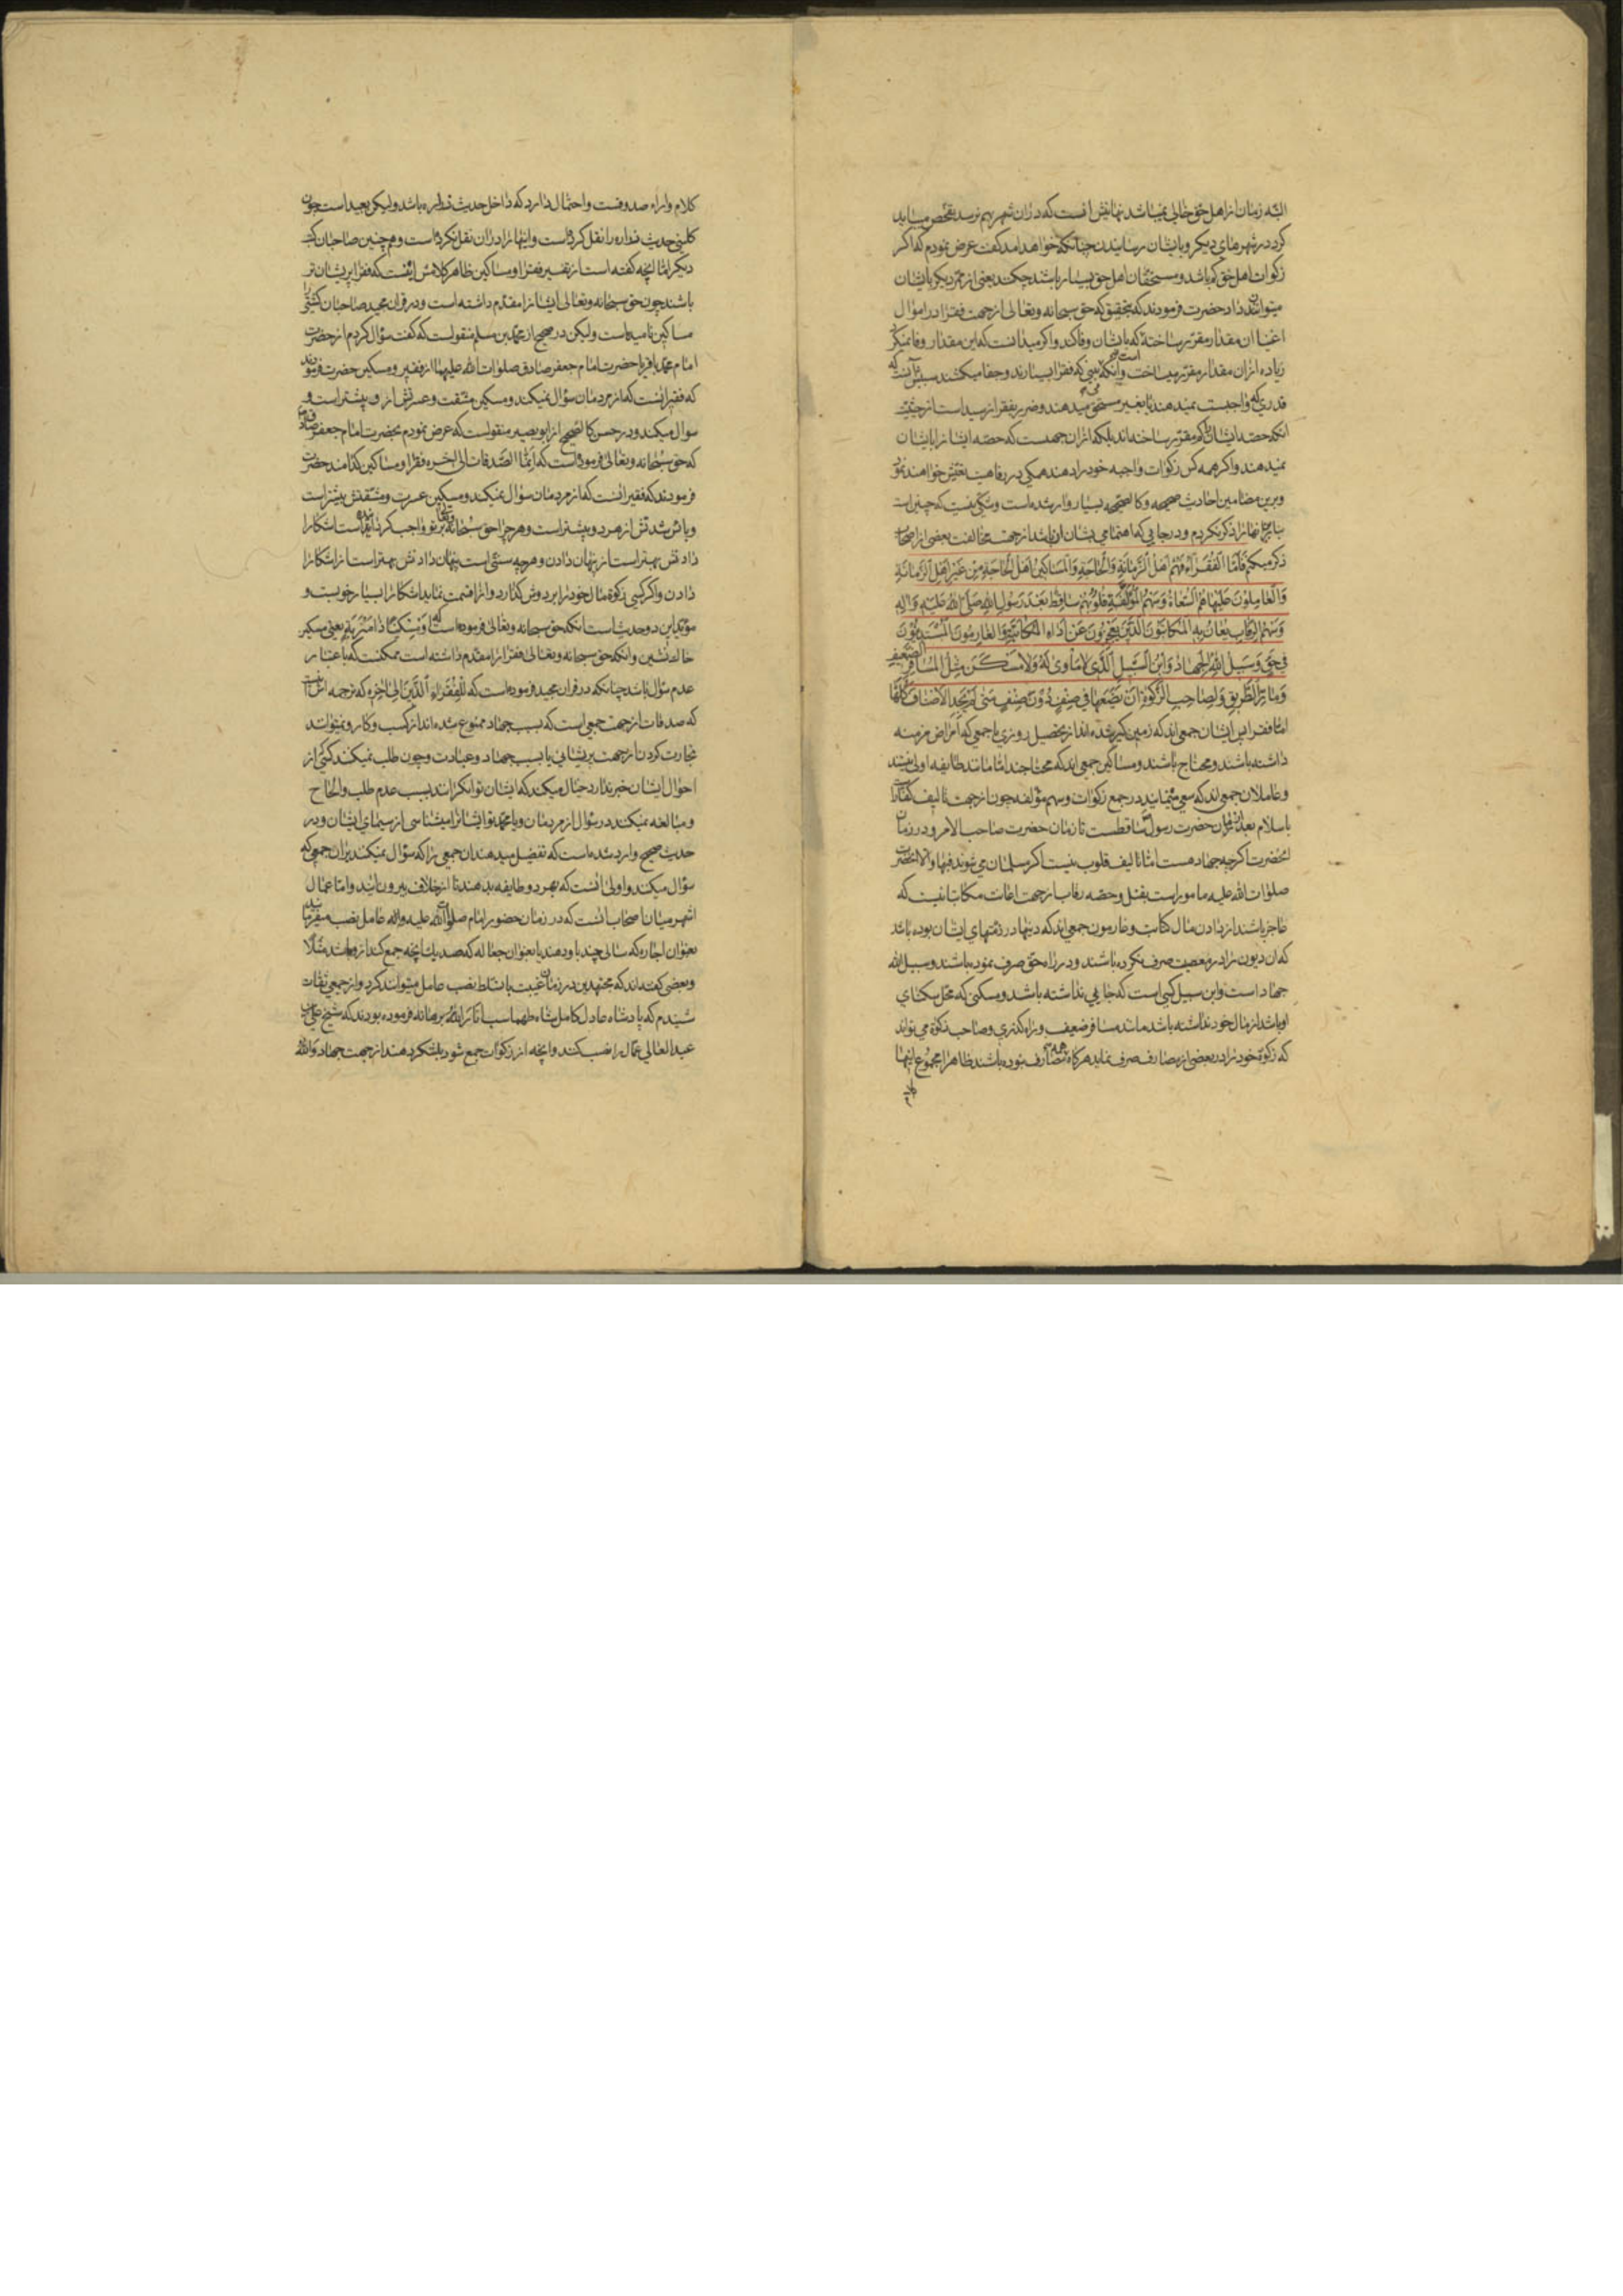 البته زمان از اهل حق خالی نمیباشد نهایتش آنست که در آن شهر بهم نرسد تفحص میباید
کرد در شهرهای دیکر و بایشان رسانیدن چنانکه خواهد آمد کفت عرض نمودم که اکر
زکوات اهل حق کم باشد و مستحقان اهل حق بسیار باشند چکند یعنی از ممر دیکر بایشان
میتوانند داد حضرت فرمودند که بتحقیق که حق سبحانه و تعالی از جهت فقرا در اموال
اغنیا آن مقدار مقرر ساخته که بایشان وفا کند و اکر میدانست که این مقدار وفا نمیکرد
زیاده از آن مقدار مقرر میساخت و آنکه می بینی که فقرا بسیارند و جفا میکشند سببش آنست که
قدری که واجبست نمیدهند یا بغیر مستحق میدهند و ضرر بفقرا نرسیده است از حیثیت
آنکه حصه ایشان را کم مقرر ساخته اند بلکه از آن جهتست که حصه ایشانرا بایشان
نمیدهند و اکر همه کس زکوات واجبه خود را دهند همکی در رفاهیت تعیش خواهند نمود
و برین مضامین احادیث صحیحه و کالصحیحه بسیار وارد شده است و شکی نیست که چنین است
بنابراین آنها را ذکر نکردم و در جایی که اهتمامی بشان آن باشد از جهت مخالفت بعضی از اصحاب
ذکر میکنم فَاَمَّا الْفُقَرَاءُ فَهُمْ اَهْلُ الزَّمَانَةِ وَالْحَاجَةِ وَالْمَسَاكِيْنُ اَهْلُ الْحَاجَةِ مِنْ غَيْرِ اَهْلِ الزَّمَانَةِ
وَالْعَامِلُوْنَ عَلَيْهَا هُمُ السُّعَاةُ وَسَهْمُ الْمُؤَلَّفَةِ قُلُوْبُهُمْ سَاقِطٌ بَعْدَ رَسُوْلِ اللهِ صَلَّى اللهُ عَلَيْهِ وَاٰلِهِ
وَسَهْمُ الرِّقَابِ يُعَانُ بِهِ الْمُكَاتَبُوْنَ الَّذِيْنَ يَعْجِزُوْنَ عَنْ اَدَاءِ الْمُكَاتَبَةِ وَالْغَارِمُوْنَ الْمُسْتَدِيْنُوْنَ
فِيْ حَقٍّ وَسَبِيْلُ اللهِ الْجِهَادُ وَابْنُ السَّبِيْلِ الَّذِىْ لَا مَأْوٰى لَهُ وَلَا مَسْكَنَ مِثْلُ الْمُسَافِرِ الضَّعِيْفِ
وَمَارِّ الطَّرِيْقِ وَلِصَاحِبِ الزَّكٰوةِ اَنْ يَضَعَهَا فِيْ صِنْفٍ دُوْنَ صِنْفٍ مَتٰى لَمْ يَجِدِ الْاَصْنَافَ كُلَّهَا
اما فقرا پس ایشان جمعی اند که زمین کیر شده اند از تحصیل روزی یا جمعی که امراض مزمنه
داشته باشند و محتاج باشند و مساکین جمعی اند که محتاجند اما مانند طایفه اولی نیستند
و عاملان جمعی اند که سعی مینمایند در جمع زکوات و سهم مؤلفه چون از جهت تالیف کفار است
باسلام بعد از زمان حضرت رسول ساقطست تا زمان حضرت صاحب الامر و در زمان
آنحضرت اکرچه جهاد هست اما تالیف قلوب نیست اکر مسلمان می شوند فبها و الا آنحضرت
صلوات الله علیه مامور است بقتل و حصه رقاب از جهت اعانت مکاتبانیست که
عاجز باشند از دادن مال کتابت و غارمون جمعی اند که دینها در ذمتهای ایشان بوده باشد
که آن دیون را در معصیت صرف نکرده باشند و در راه حق صرف نموده باشند و سبیل الله
جهاد است و ابن سبیل کسی است که جایی نداشته باشد و مسکنی که محل سکنای
او باشد از مال خود نداشته باشد مانند مسافر ضعیف و براه کذری و صاحب زکوة می تواند
که زکوة خود را در بعضی از مصارف صرف نماید هرکاه همه مصارف نبوده باشند ظاهرا مجموع اینها
کلام
کلام و آراء صدوقست و احتمال دارد که داخل حدیث زراره باشد و لیکن بعید است چون
کلینی حدیث زراره را نقل کرده است و اینها را در آن نقل نکرده است و همچنین صاحبان کتب
دیکر اما آنچه کفته است از تفسیر فقرا و مساکین ظاهر کلامش اینست که فقرا پریشان تر
باشند چون حق سبحانه و تعالی ایشانرا مقدم داشته است و در قرآن مجید صاحبان کشتی را
مساکین نامیده است و لیکن در صحیح از محمد بن مسلم منقولست که کفت سؤال کردم از حضرت
امام محمد باقر یا حضرت امام جعفر صادق صلوات الله علیهما از فقیر و مسکین حضرت فرمودند
که فقیر آنست که از مردمان سؤال نمیکند و مسکین مشقت و عسرتش از و بیشتر است و
سوال میکند و در حسن کالصحیح از ابو بصیر منقولست که عرض نمودم بحضرت امام جعفر صادق
که حق سبحانه و تعالی فرموده است که اِنَّمَا الصَّدَقَاتُ الی آخره فقرا و مساکین کدامند حضرت
فرمودند که فقیر آنست که از مردمان سؤال نمیکند و مسکین عسرت و مشقتش بیشتر است
و بائس شدتش از هر دو بیشتر است و هر چرا حق سبحانه و تعالی بر تو واجب کردانیده است آشکارا
دادنش بهتر است از پنهان دادن و هرچه سنتی است پنهان دادنش بهتر است از آشکارا
دادن و اکر کسی زکوة مال خود را بر دوش کذارد و آنرا قسمت نماید آشکارا بسیار خوبست و
مؤید این دو حدیث است آنکه حق سبحانه و تعالی فرموده است که اَوْ مِسْكِيْنًا ذَا مَتْرَبَةٍ یعنی مسکین
خاك نشین و آنکه حق سبحانه و تعالی فقرا را مقدم داشته است ممکنست که باعتبار
عدم سؤال باشد چنانکه در قرآن مجید فرموده است که لِلْفُقَرَاءِ الَّذِيْنَ الی آخره که ترجمه اش آنست
که صدقات از جهت جمعی است که بسبب جهاد ممنوع شده اند از کسب و کار و نمیتوانند
تجارت کردن از جهت پریشانی یا بسبب جهاد و عبادت و چون طلب نمیکنند کسی از
احوال ایشان خبر ندارد خیال میکند که ایشان توانکرانند بسبب عدم طلب و الحاح
و مبالغه نمیکنند در سؤال از مردمان و یا محمد تو ایشانرا میشناسی از سیمای ایشان و در
حدیث صحیح وارد شده است که تفضیل میدهند آن جمعی را که سؤال نمیکنند بر آن جمعی که
سؤال میکنند و اولی آنست که بهر دو طایفه بدهند تا از خلاف بیرون آیند و اما عمال
اشهر میان اصحاب آنست که در زمان حضور امام صلوات الله علیه و آله عامل نصب میفرمایند
بعنوان اجاره که سالی چند باو دهند یا بعنوان جعاله که صد یك آنچه جمع کند از و باشد مثلا
و بعضی کفته اند که مجتهدین در زمان غیبت با تسلط نصب عامل میتوانند کرد و از جمعی ثقات
شنیدم که پادشاه عادل کامل شاه طهماسب انار الله برهانه فرموده بودند که شیخ علی بن
عبد العالی عمال را نصب کنند و آنچه از زکوات جمع شود بلشکر دهند از جهت جهاد و الله